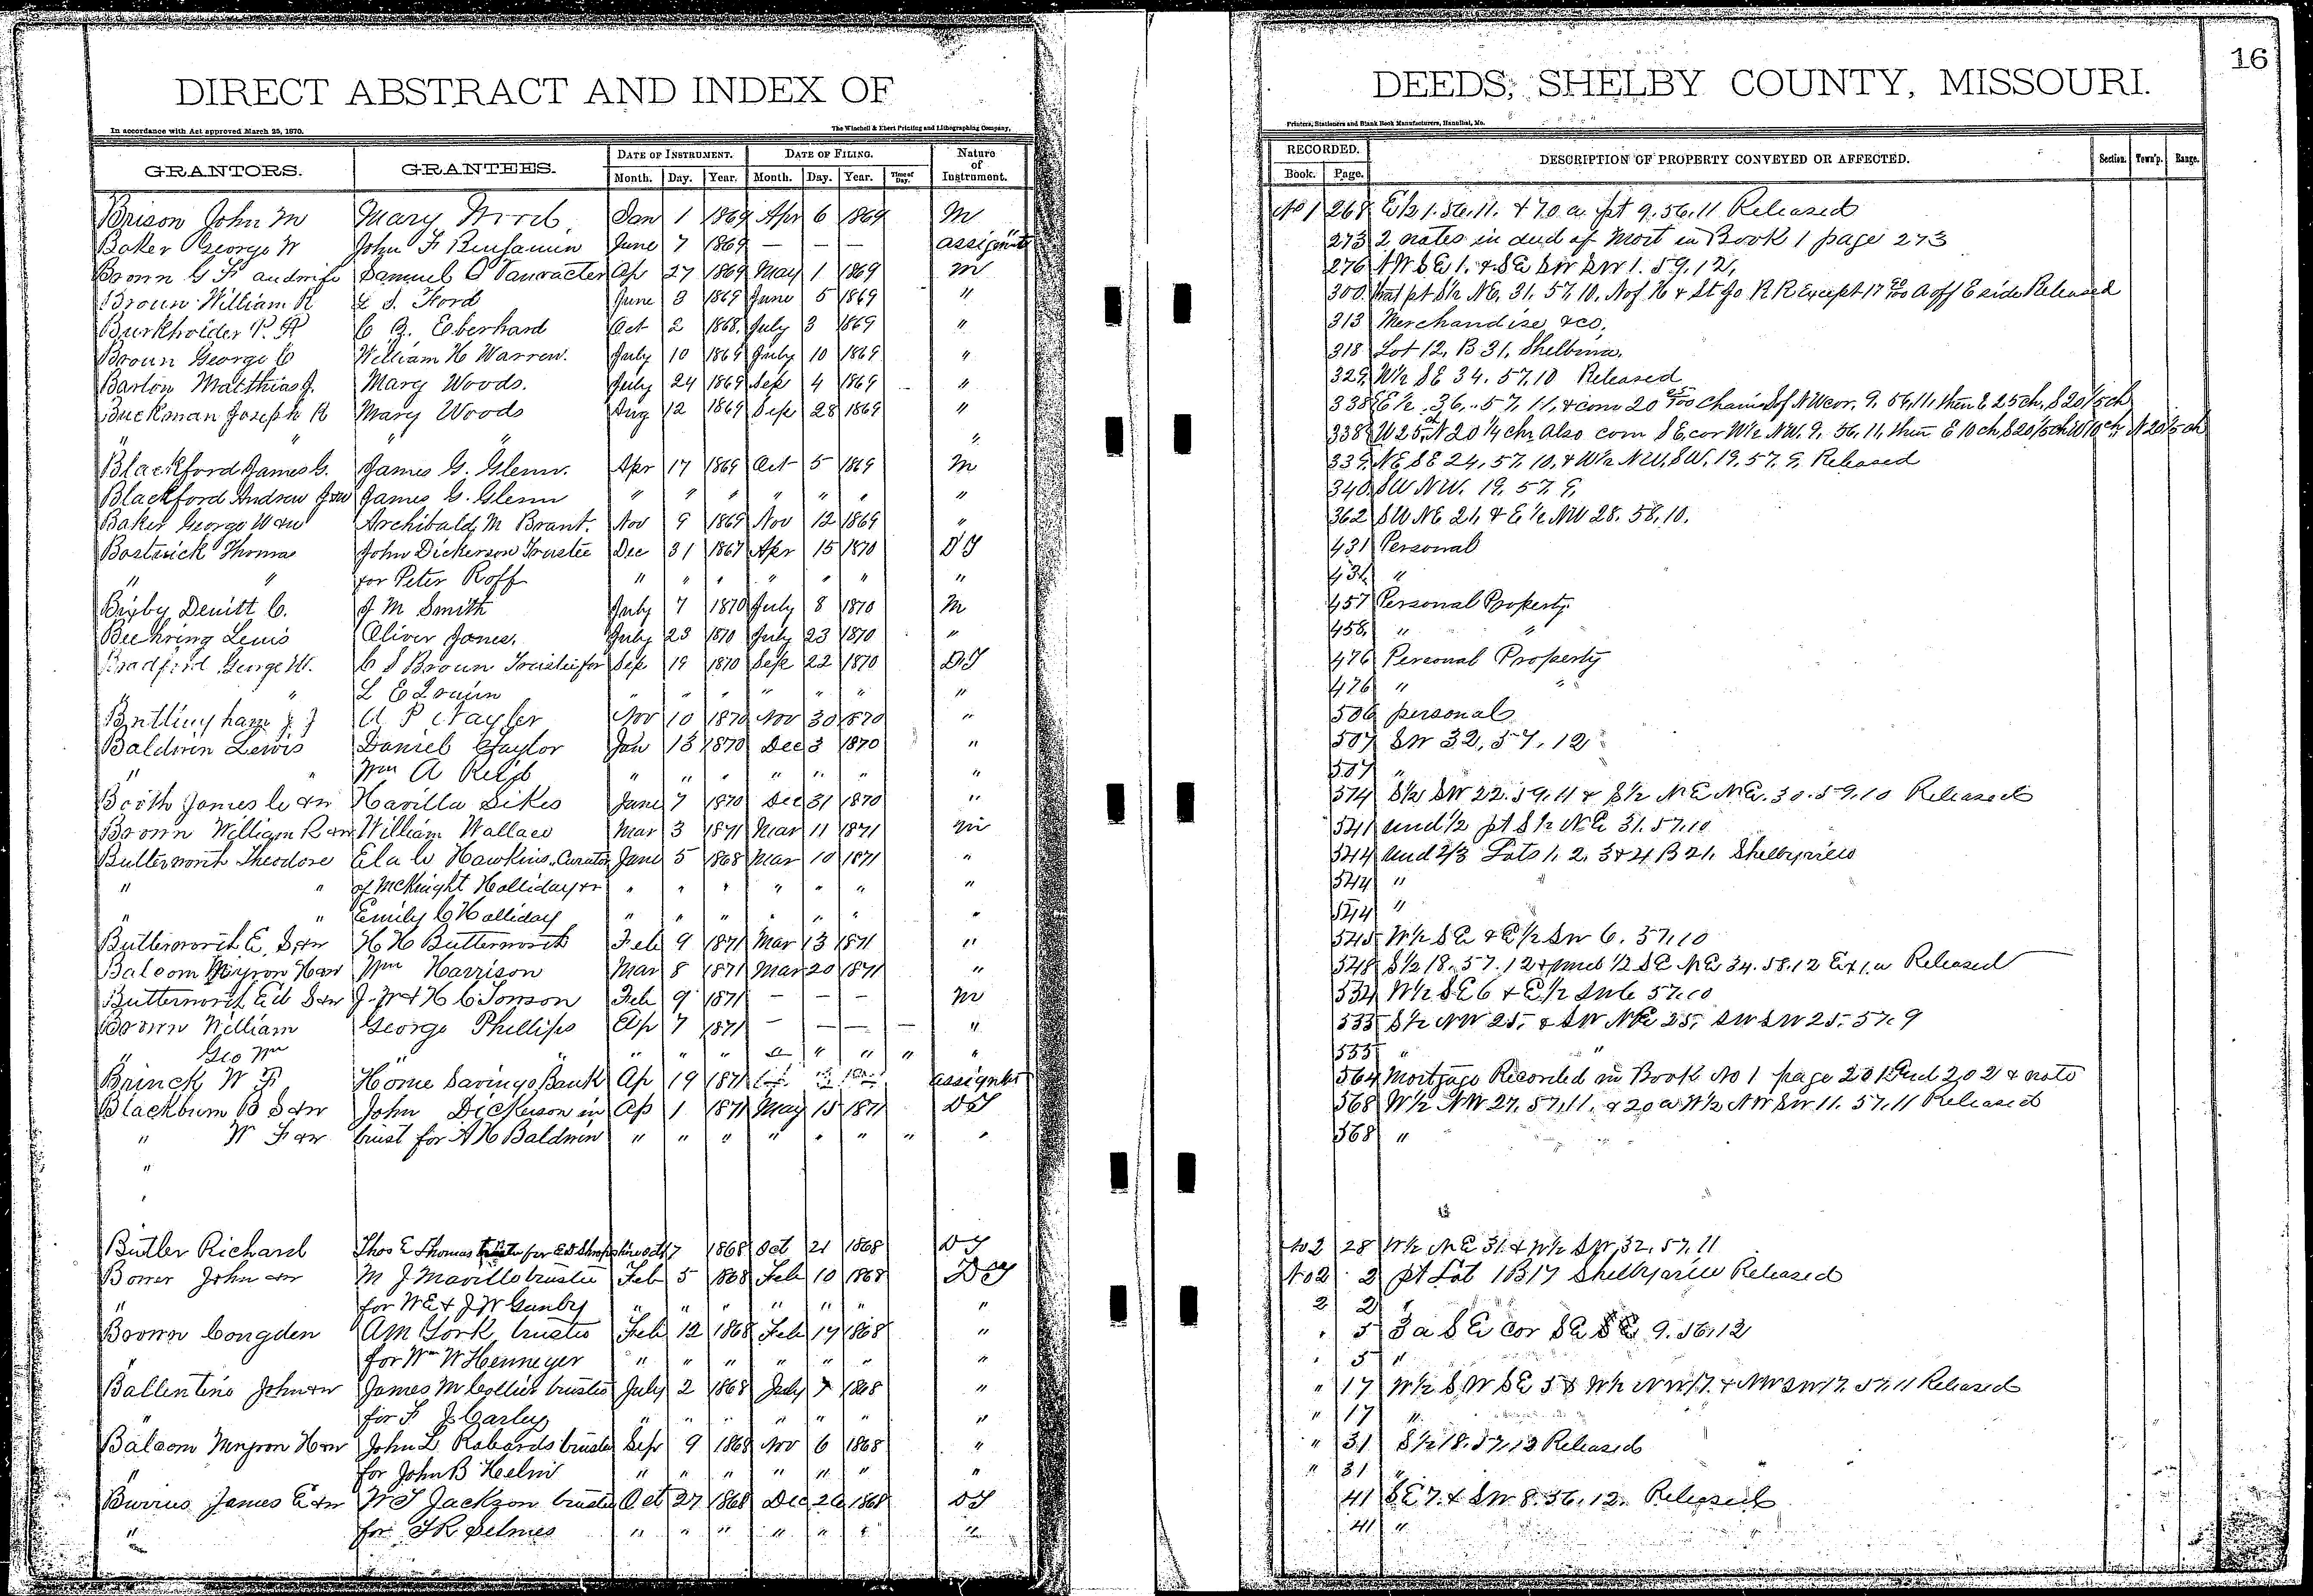 16
DIRECT ABSTRACT AND INDEX OF DEEDS, SHELBY COUNTY, MISSOURI.
In accordance with Act approved March 25, 1870. The Winchell & Ebert Printing and Lithographing Company, Printers, Stationers and Blank Book Manufacturers, Hannibal, Mo.
GRANTORS. GRANTEES. DATE OF INSTRUMENT. DATE OF FILING. Nature of Instrument. RECORDED. DESCRIPTION OF PROPERTY CONVEYED OR AFFECTED. Section. Town'p. Range.
Month. Day. Year. Month. Day. Year. Time of Day. Book. Page.
Brison John M Mary Wood Jan 1 1869 Apr 6 1869 M No 1 268 E½ 1. 56. 11. & 70 a pt 9. 56. 11 Released
Baker George W John F Benjamin June 7 1869 — — — assignt 273 2 notes in deed of Mort in Book 1 page 273
Brown G F and wife Samuel O Vanvacter Ap 27 1869 May 1 1869 M 276 NW SE 1. & SE SW SW 1. 59. 12,
Brown William R L S. Ford June 3 1869 June 5 1869 " 300 that pt S½ NE, 31. 57. 10. N of H & St Jo RR Except 17 A off E side Released
Burkholder P. P C B. Eberhard Oct 2 1868. July 3 1869 " 313 Merchandise &co.
Brown George C William H Warren. July 10 1869 July 10 1869 " 318 Lot 12, B 31, Shelbina.
Barton Matthias J. Mary Woods. July 24 1869 Sep 4 1869 " 329 W½ SE 34. 57. 10 Released
Buckman Joseph R Mary Woods Aug 12 1869 Sep 28 1869 " 338 E½ 36, 57, 11, & com 20 chains S of NW cor. 9. 56, 11, then E 25 ch, S 20⅕ ch
" " " " 338 W 25 ch N 20¼ chs Also com SE. cor W½ NW. 9. 56, 11, then E 10 ch, S 20⅕ ch W 10 ch, N 20⅕ ch
Blackford James G. James G. Glenn. Apr 17 1869 Oct 5 1869 M 339 NE SE 24, 57. 10, & W½ NW, SW, 19. 57. 9, Released
Blackford Andrew J &w James G. Glenn " " " " " " " 340 SW NW. 19. 57. 9,
Baker George W &w Archibald M Brant. Nov 9 1869 Nov 12 1869 " 362 SW NE 21, & E½ NW 28. 58, 10.
Bostwick Thomas John Dickerson Trustee Dec 31 1867 Apr 15 1870 DT 431 Personal
" " for Peter Roff " " " " " " " 431 "
Bixby Dewitt C. J M Smith July 7 1870 July 8 1870 M 457 Personal Property
Buehring Lewis Oliver Jones. July 23 1870 July 23 1870 " 458 " "
Bradford George W. C S Brown Trustee for Sep 19 1870 Sep 22 1870 DT 476 Personal Property
" " L E " " " " " " " 476 " "
Brittingham J J Nov 10 1870 Nov 30 1870 " 506 personal
Baldwin Lewis Daniel Taylor Jan 13 1870 Dec 3 1870 " 507 SW 32, 57. 12
" " Wm A " " " " " " " 507 "
Booth James &w Havilla Sikes June 7 1870 Dec 31 1870 " 514 S½ SW 22. 59. 11 & S½ NE NE. 30. 59. 10 Released
Brown William R &w William Wallace Mar 3 1871 Mar 11 1871 M 541 und ½ pt S½ NE 31. 57. 10
Butterworth Theodore Ela C Hawkins, Curator June 5 1868 Mar 10 1871 " 544 und 2/3 Lots 1. 2. 3 & 4 B 21, Shelbyville
" " of McKnight Holliday &r " " " " " " " 544 "
" " Emily C Holliday " " " " " " " 544 "
Butterworth E. S &w H H Butterworth Feb 9 1871 Mar 13 1871 " 545 W½ SE & E½ SW 6. 57. 10
Balcom Myron H &w Wm Harrison Mar 8 1871 Mar 20 1871 " 548 S½ 18. 57. 12 & und ½ SE NE 34. 58. 12 Ex 1 a Released
Butterworth Ed S &w J. W & H C Tonson Feb 9 1871 — — — M 534 W½ SE 6 & E½ SW 6 57. 10
Brown William George Phillips Ap 7 1871 — — — — " 535 S½ NW 25, & SW NE 25, SW SW 25. 57. 9
" Geo Wm " " " " " " " " " 535 " "
Brinck W F Home Savings Bank Ap 19 1871 assignt 564 Mortgage Recorded in Book No 1 page 201 and 202 & note
Blackburn B S &w John Dickerson in Ap 1 1871 May 15 1871 DT 568 W½ NW 27. 57. 11. & 20 a W½ NW SW 11. 57. 11 Released
" W F &w trust for A H Baldwin " " " " " " " " 568 "
"
Butler Richard Thos E Thomas trustee for E D Shropshire Oct 7 1868 Oct 21 1868 DT No 2 28 W½ NE 31. & W½ SW 32. 57. 11
Bower John &w M J Manville trustee Feb 5 1868 Feb 10 1868 DT No 2 2 pt Lot 1 B 17 Shelbyville Released
" for W E & J W Ganby " " " " " " " 2 2 "
Brown Congden A M York trustee Feb 12 1868 Feb 17 1868 " " 5 3 a SE cor SE SE 9. 56. 12
" for Wm W Henneger " " " " " " " " 5 "
Ballentine John &w James M Collier trustee July 2 1868 July 7 1868 " " 17 W½ SW SE 5 & W½ NW 17. & NW SW 17. 57. 11 Released
" for F J Carley " " " " " " " " 17 "
Balcom Myron H &w John L Robards trustee Sep 9 1868 Nov 6 1868 " " 31 S½ 18. 57. 12 Released
" for John B Helm " " " " " " " " 31 "
Burrus James E &w W T Jackson trustee Oct 27 1868 Dec 26 1868 DT 41 SE 7. & SW 8. 56. 12. Released
" for T R Selmes " " " " " " " 41 "